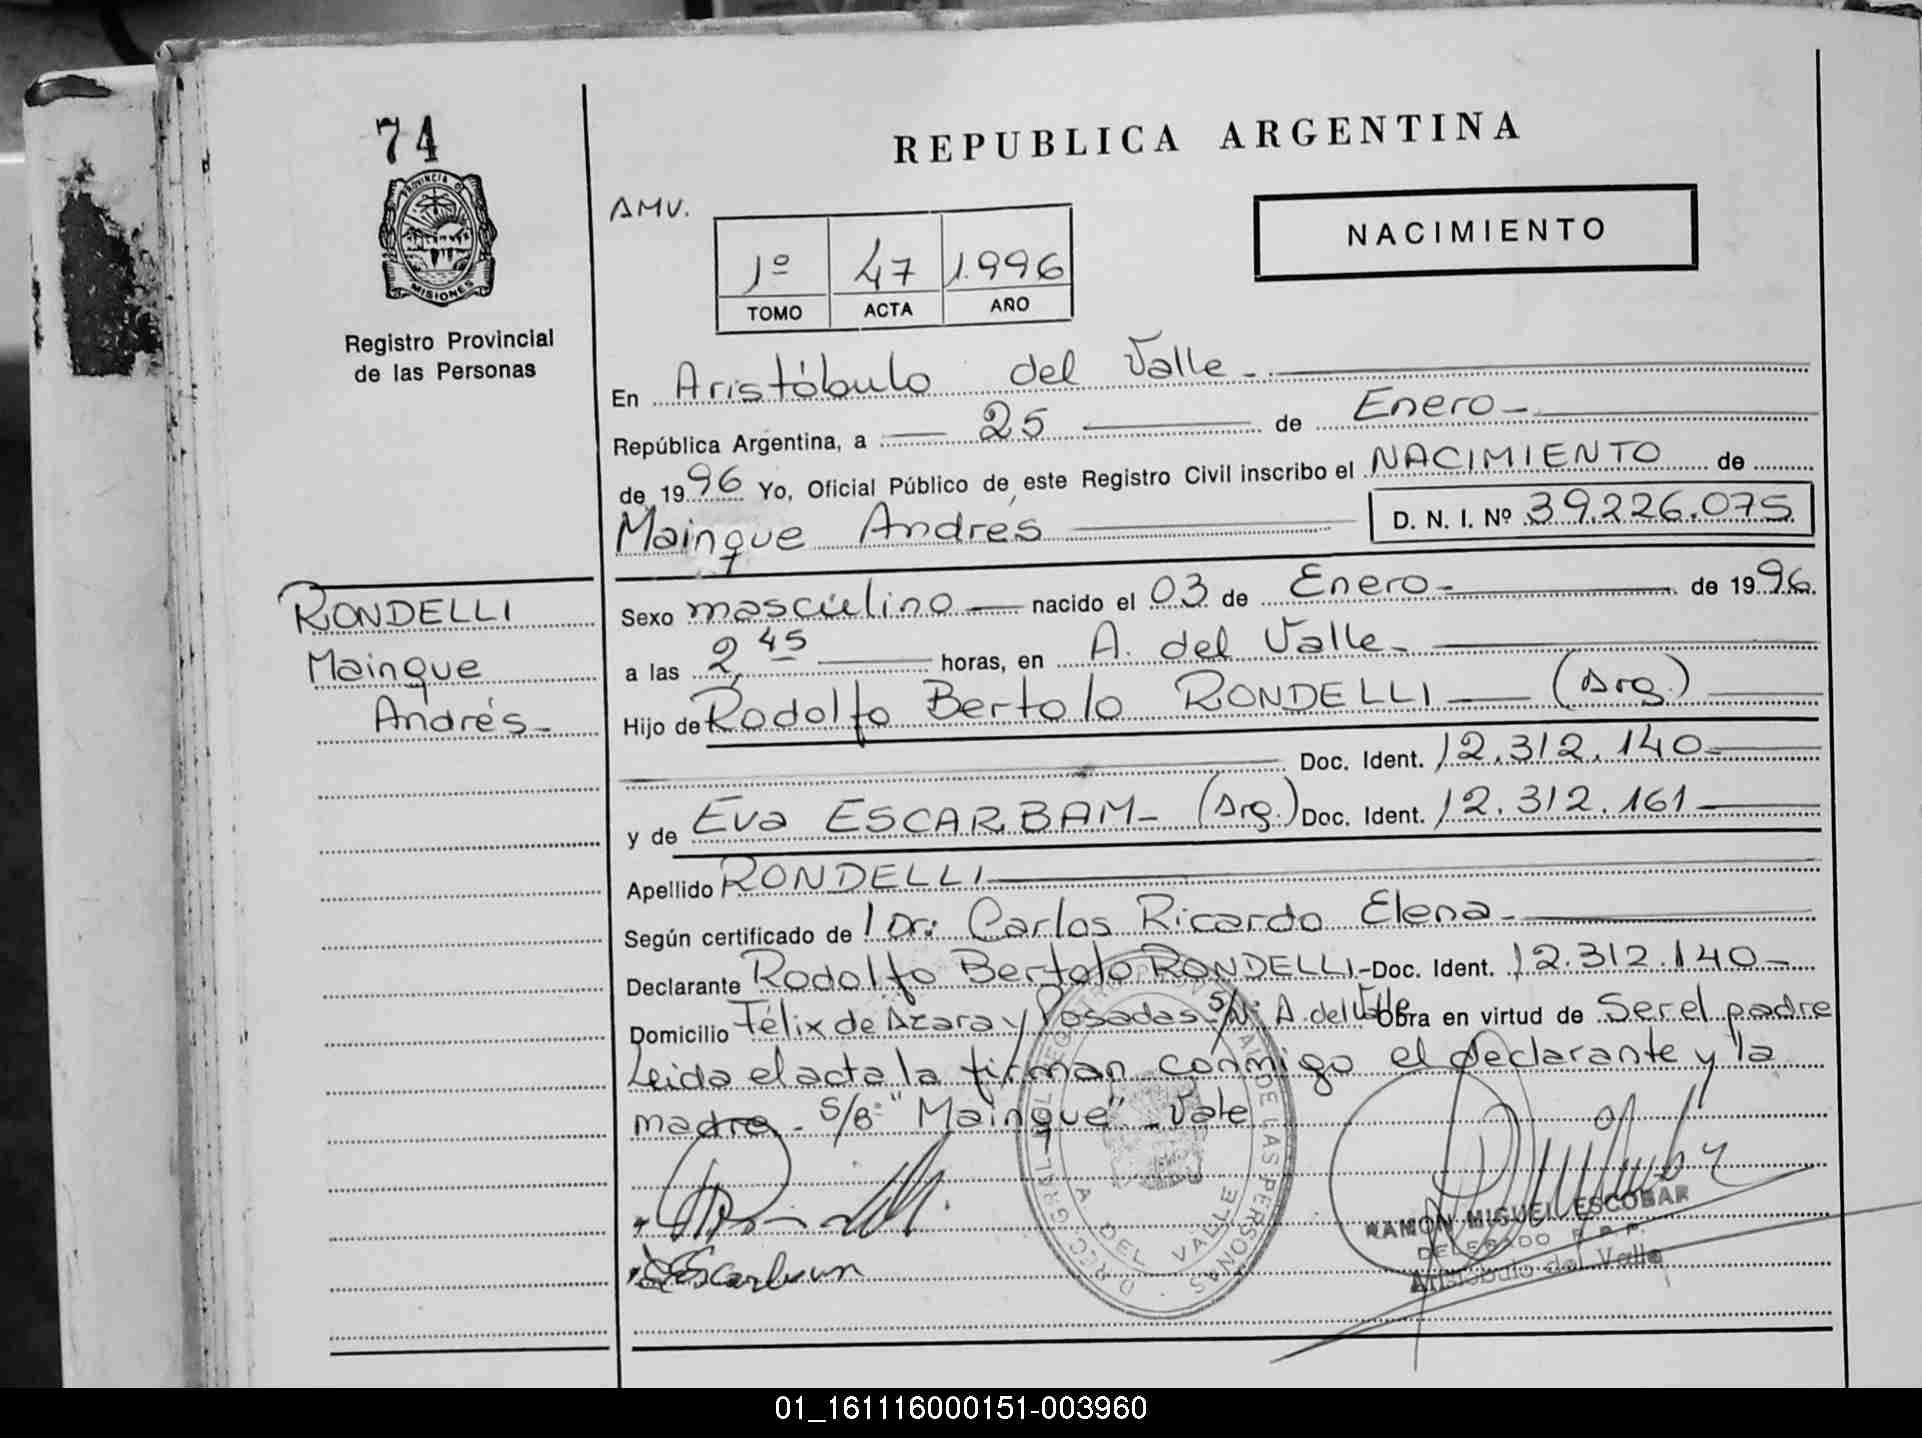 74
PROVINCIA DE
MISIONES
Registro Provincial
de las Personas
REPUBLICA ARGENTINA
AMV.
NACIMIENTO
1º 47 1.996
TOMO ACTA AÑO
En Aristóbulo del Valle -
República Argentina, a 25 de Enero -
de 1996 Yo, Oficial Público de este Registro Civil inscribo el NACIMIENTO de
Mainque Andrés D. N. I. Nº 39.226.075
RONDELLI
Mainque
Andrés -
Sexo masculino nacido el 03 de Enero - de 1996.
a las 2,45 horas, en A. del Valle -
Hijo de Rodolfo Bertolo RONDELLI (Arg.)
Doc. Ident. 12.312.140 -
y de Eva ESCARBAM - (Arg.) Doc. Ident. 12.312.161
Apellido RONDELLI
Según certificado de l Dr: Carlos Ricardo Elena -
Declarante Rodolfo Bertolo RONDELLI - Doc. Ident. 12.312.140 -
Domicilio Félix de Azara y Posadas S/N: A. del Valle Obra en virtud de Ser el padre
Leida el acta la firman conmigo el declarante y la
madre - S/B: "Mainque" - Vale
DE LAS PERSONAS
A. DEL VALLE
Escarbam
RAMON MIGUEL ESCOBAR
DELEGADO R. P. P.
Aristóbulo del Valle
01_161116000151-003960